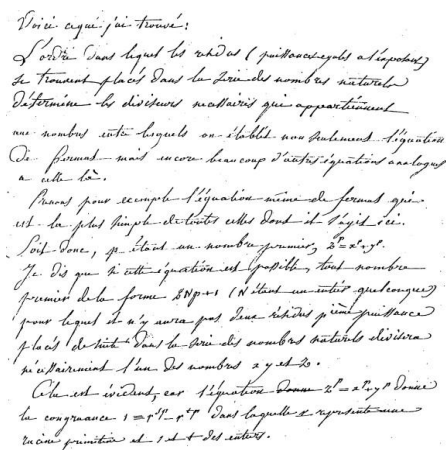 Voici ce que j'ai trouvé :
L'ordre dans lequel les résidus (puissances egales a l'exposant)
se trouvent placés dans la serie des nombres naturels
détermine les diviseurs necessaires qui appartiennent
aux nombres entre lesquels on établit non seulement l'équation
de fermat mais encore beaucoup d'autres équations analogues
a celle là.
Prenons pour exemple l'équation même de fermat qui
est la plus simple de toutes celles dont il s'agit ici.
Soit donc, p étant un nombre premier, z^p = x^p + y^p.
Je dis que si cette équation est possible, tout nombre
premier de la forme 2Np+1 (N étant un entier quelconque)
pour lequel il n'y aura pas deux résidus pième puissance
placés de suite dans la serie des nombres naturels divisera
nécessairement l'un des nombres x y et z.
Cela est évident, car l'équation z^p = x^p + y^p donne
la congruence 1 = r^sp - r^tp dans laquelle r represente une
racine primitive et s et t des entiers.